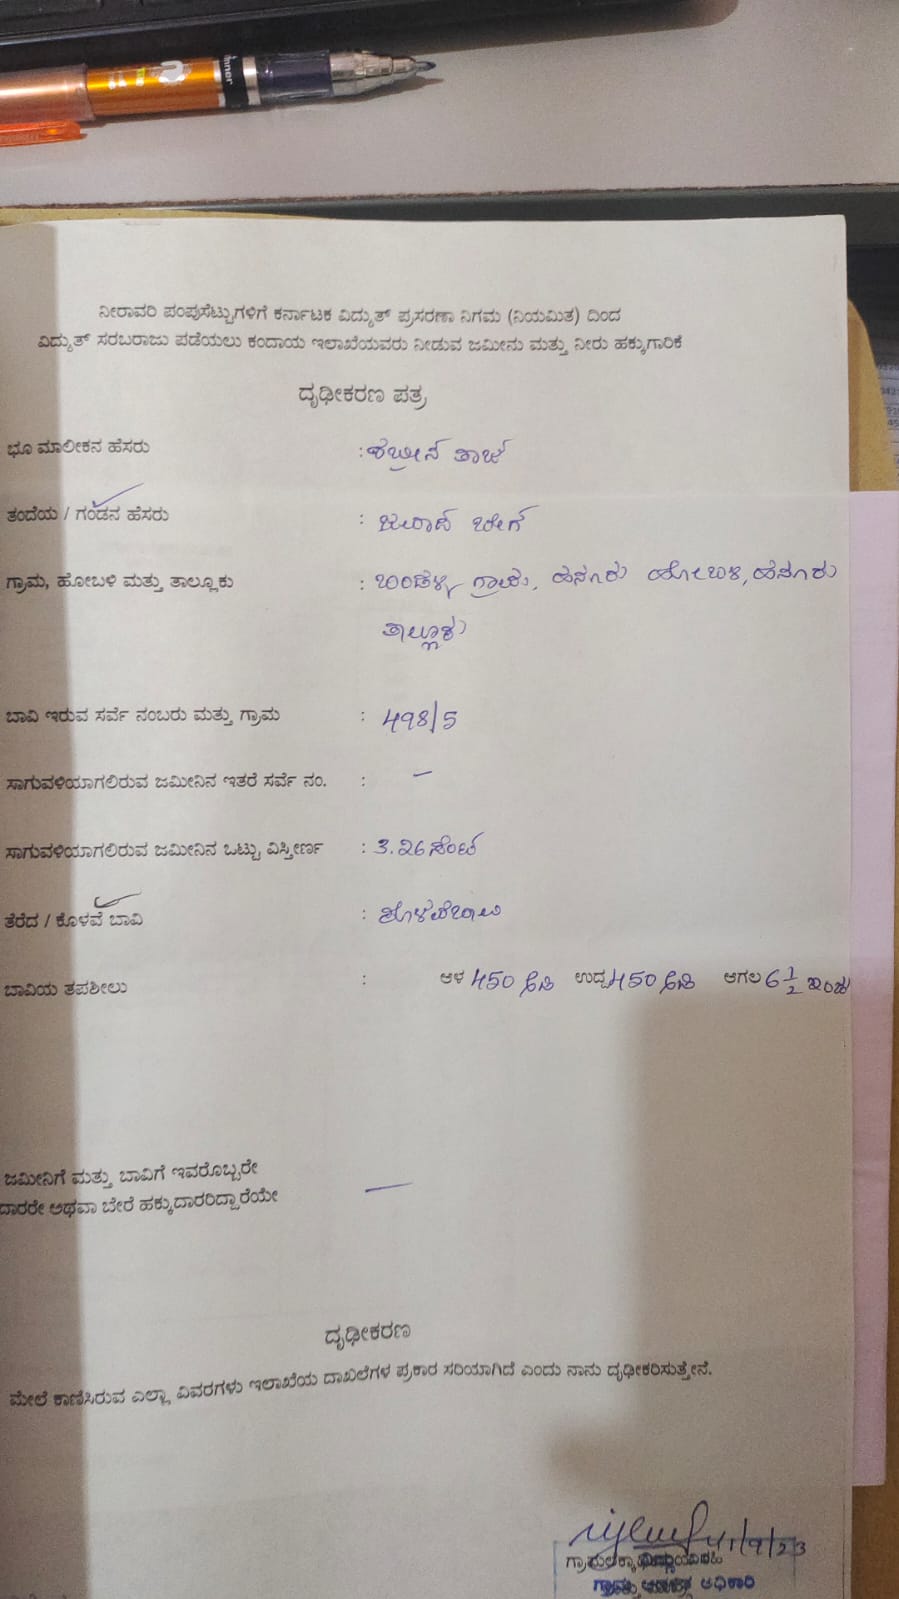 ನೀರಾವರಿ ಪಂಪುಸೆಟ್ಟುಗಳಿಗೆ ಕರ್ನಾಟಕ ವಿದ್ಯುತ್ ಪ್ರಸರಣಾ ನಿಗಮ (ನಿಯಮಿತ) ದಿಂದ
ವಿದ್ಯುತ್ ಸರಬರಾಜು ಪಡೆಯಲು ಕಂದಾಯ ಇಲಾಖೆಯವರು ನೀಡುವ ಜಮೀನು ಮತ್ತು ನೀರು ಹಕ್ಕುಗಾರಿಕೆ
ದೃಢೀಕರಣ ಪತ್ರ
ಭೂ ಮಾಲೀಕನ ಹೆಸರು : ತಾಜ್
ತಂದೆಯ / ಗಂಡನ ಹೆಸರು : ಬೇಗ್
ಗ್ರಾಮ, ಹೋಬಳಿ ಮತ್ತು ತಾಲ್ಲೂಕು : ಬಂಡಳ್ಳಿ ಗ್ರಾಮ, ಹನೂರು ಹೋಬಳಿ, ಹನೂರು
ತಾಲ್ಲೂಕು
ಬಾವಿ ಇರುವ ಸರ್ವೆ ನಂಬರು ಮತ್ತು ಗ್ರಾಮ : 498/5
ಸಾಗುವಳಿಯಾಗಲಿರುವ ಜಮೀನಿನ ಇತರೆ ಸರ್ವೆ ನಂ. : –
ಸಾಗುವಳಿಯಾಗಲಿರುವ ಜಮೀನಿನ ಒಟ್ಟು ವಿಸ್ತೀರ್ಣ : 3.26 ಸೆಂಟ್
ತೆರೆದ / ಕೊಳವೆ ಬಾವಿ : ಕೊಳವೆಬಾವಿ
ಬಾವಿಯ ತಪಶೀಲು : ಆಳ 450 ಅಡಿ ಉದ್ದ 450 ಅಡಿ ಅಗಲ 6 1/2 ಇಂಚು
ಜಮೀನಿಗೆ ಮತ್ತು ಬಾವಿಗೆ ಇವರೊಬ್ಬರೇ
ದಾರರೇ ಅಥವಾ ಬೇರೆ ಹಕ್ಕುದಾರರಿದ್ದಾರೆಯೇ —
ದೃಢೀಕರಣ
ಮೇಲೆ ಕಾಣಿಸಿರುವ ಎಲ್ಲಾ ವಿವರಗಳು ಇಲಾಖೆಯ ದಾಖಲೆಗಳ ಪ್ರಕಾರ ಸರಿಯಾಗಿದೆ ಎಂದು ನಾನು ದೃಢೀಕರಿಸುತ್ತೇನೆ.
ಅಧಿಕಾರಿ